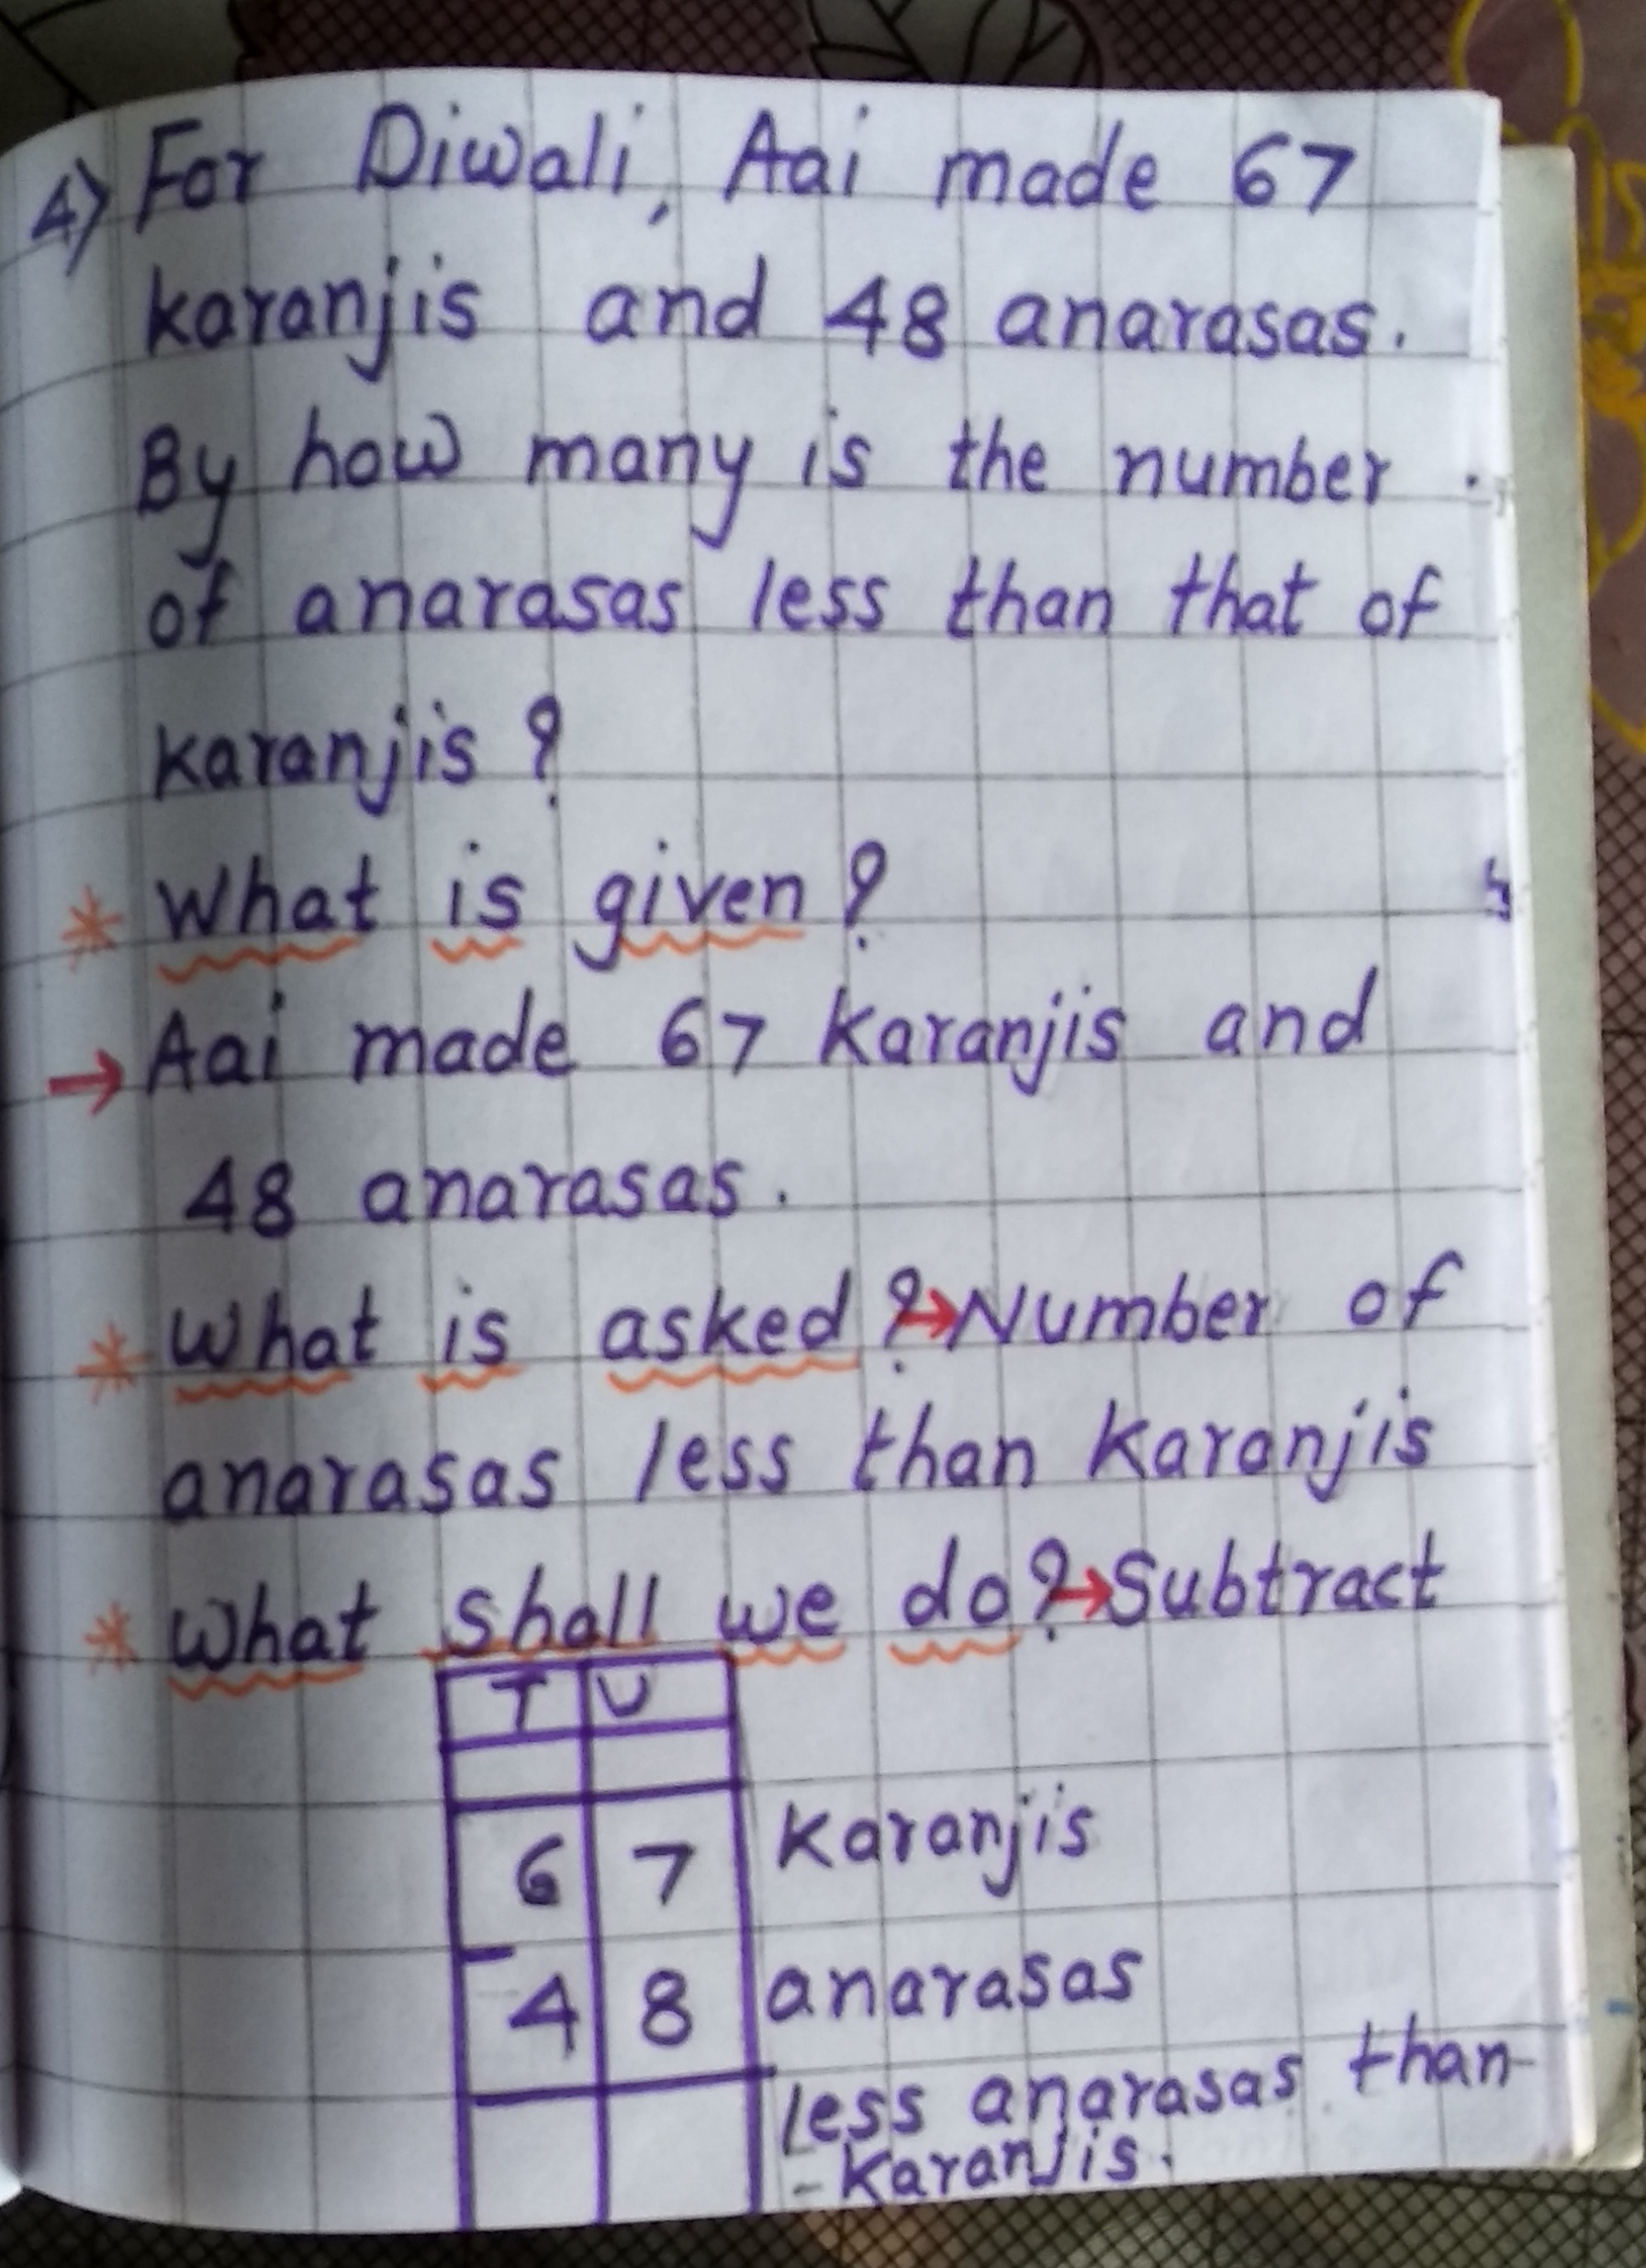 4) For Diwali, Aai made 67
karanjis and 48 anarasas.
By how many is the number
of anarasas less than that of
karanjis ?
* What is given ?
→ Aai made 67 karanjis and
48 anarasas.
* What is asked ? → Number of
anarasas less than karanjis
* What shall we do ? → Subtract
T U
6 7 karanjis
- 4 8 anarasas
less anarasas than
- karanjis.